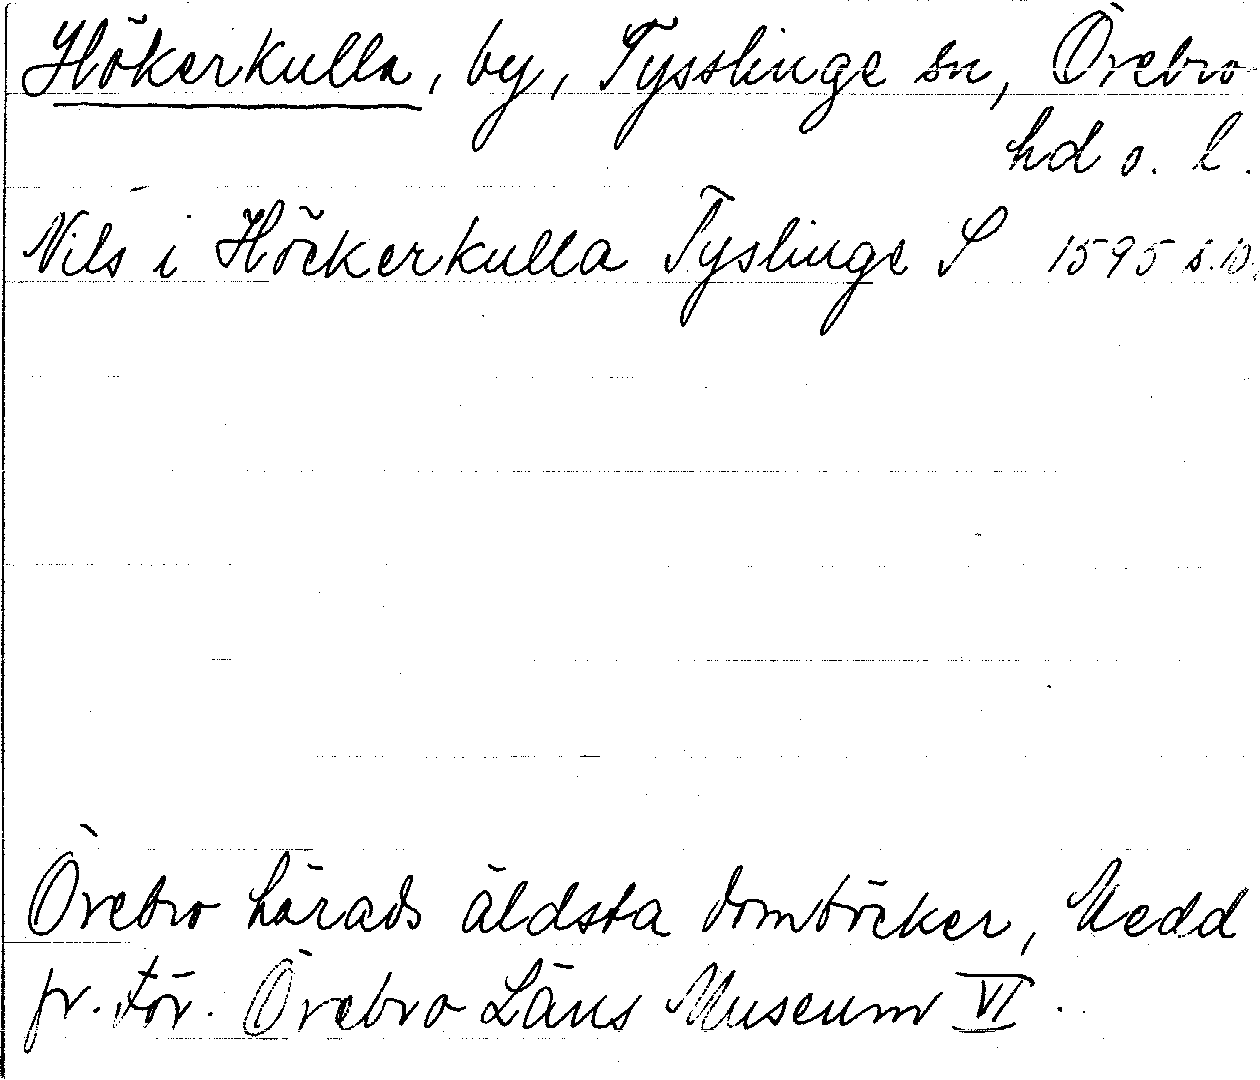 Hökerkulla, by, Tysslinge sn, Örebro
hd o. l.
Nils i Höckerkulla Tyslinge S 1595 s. 10.
Örebro härads äldsta domböcker, Medd
fr. För. Örebro Läns Museum VI.